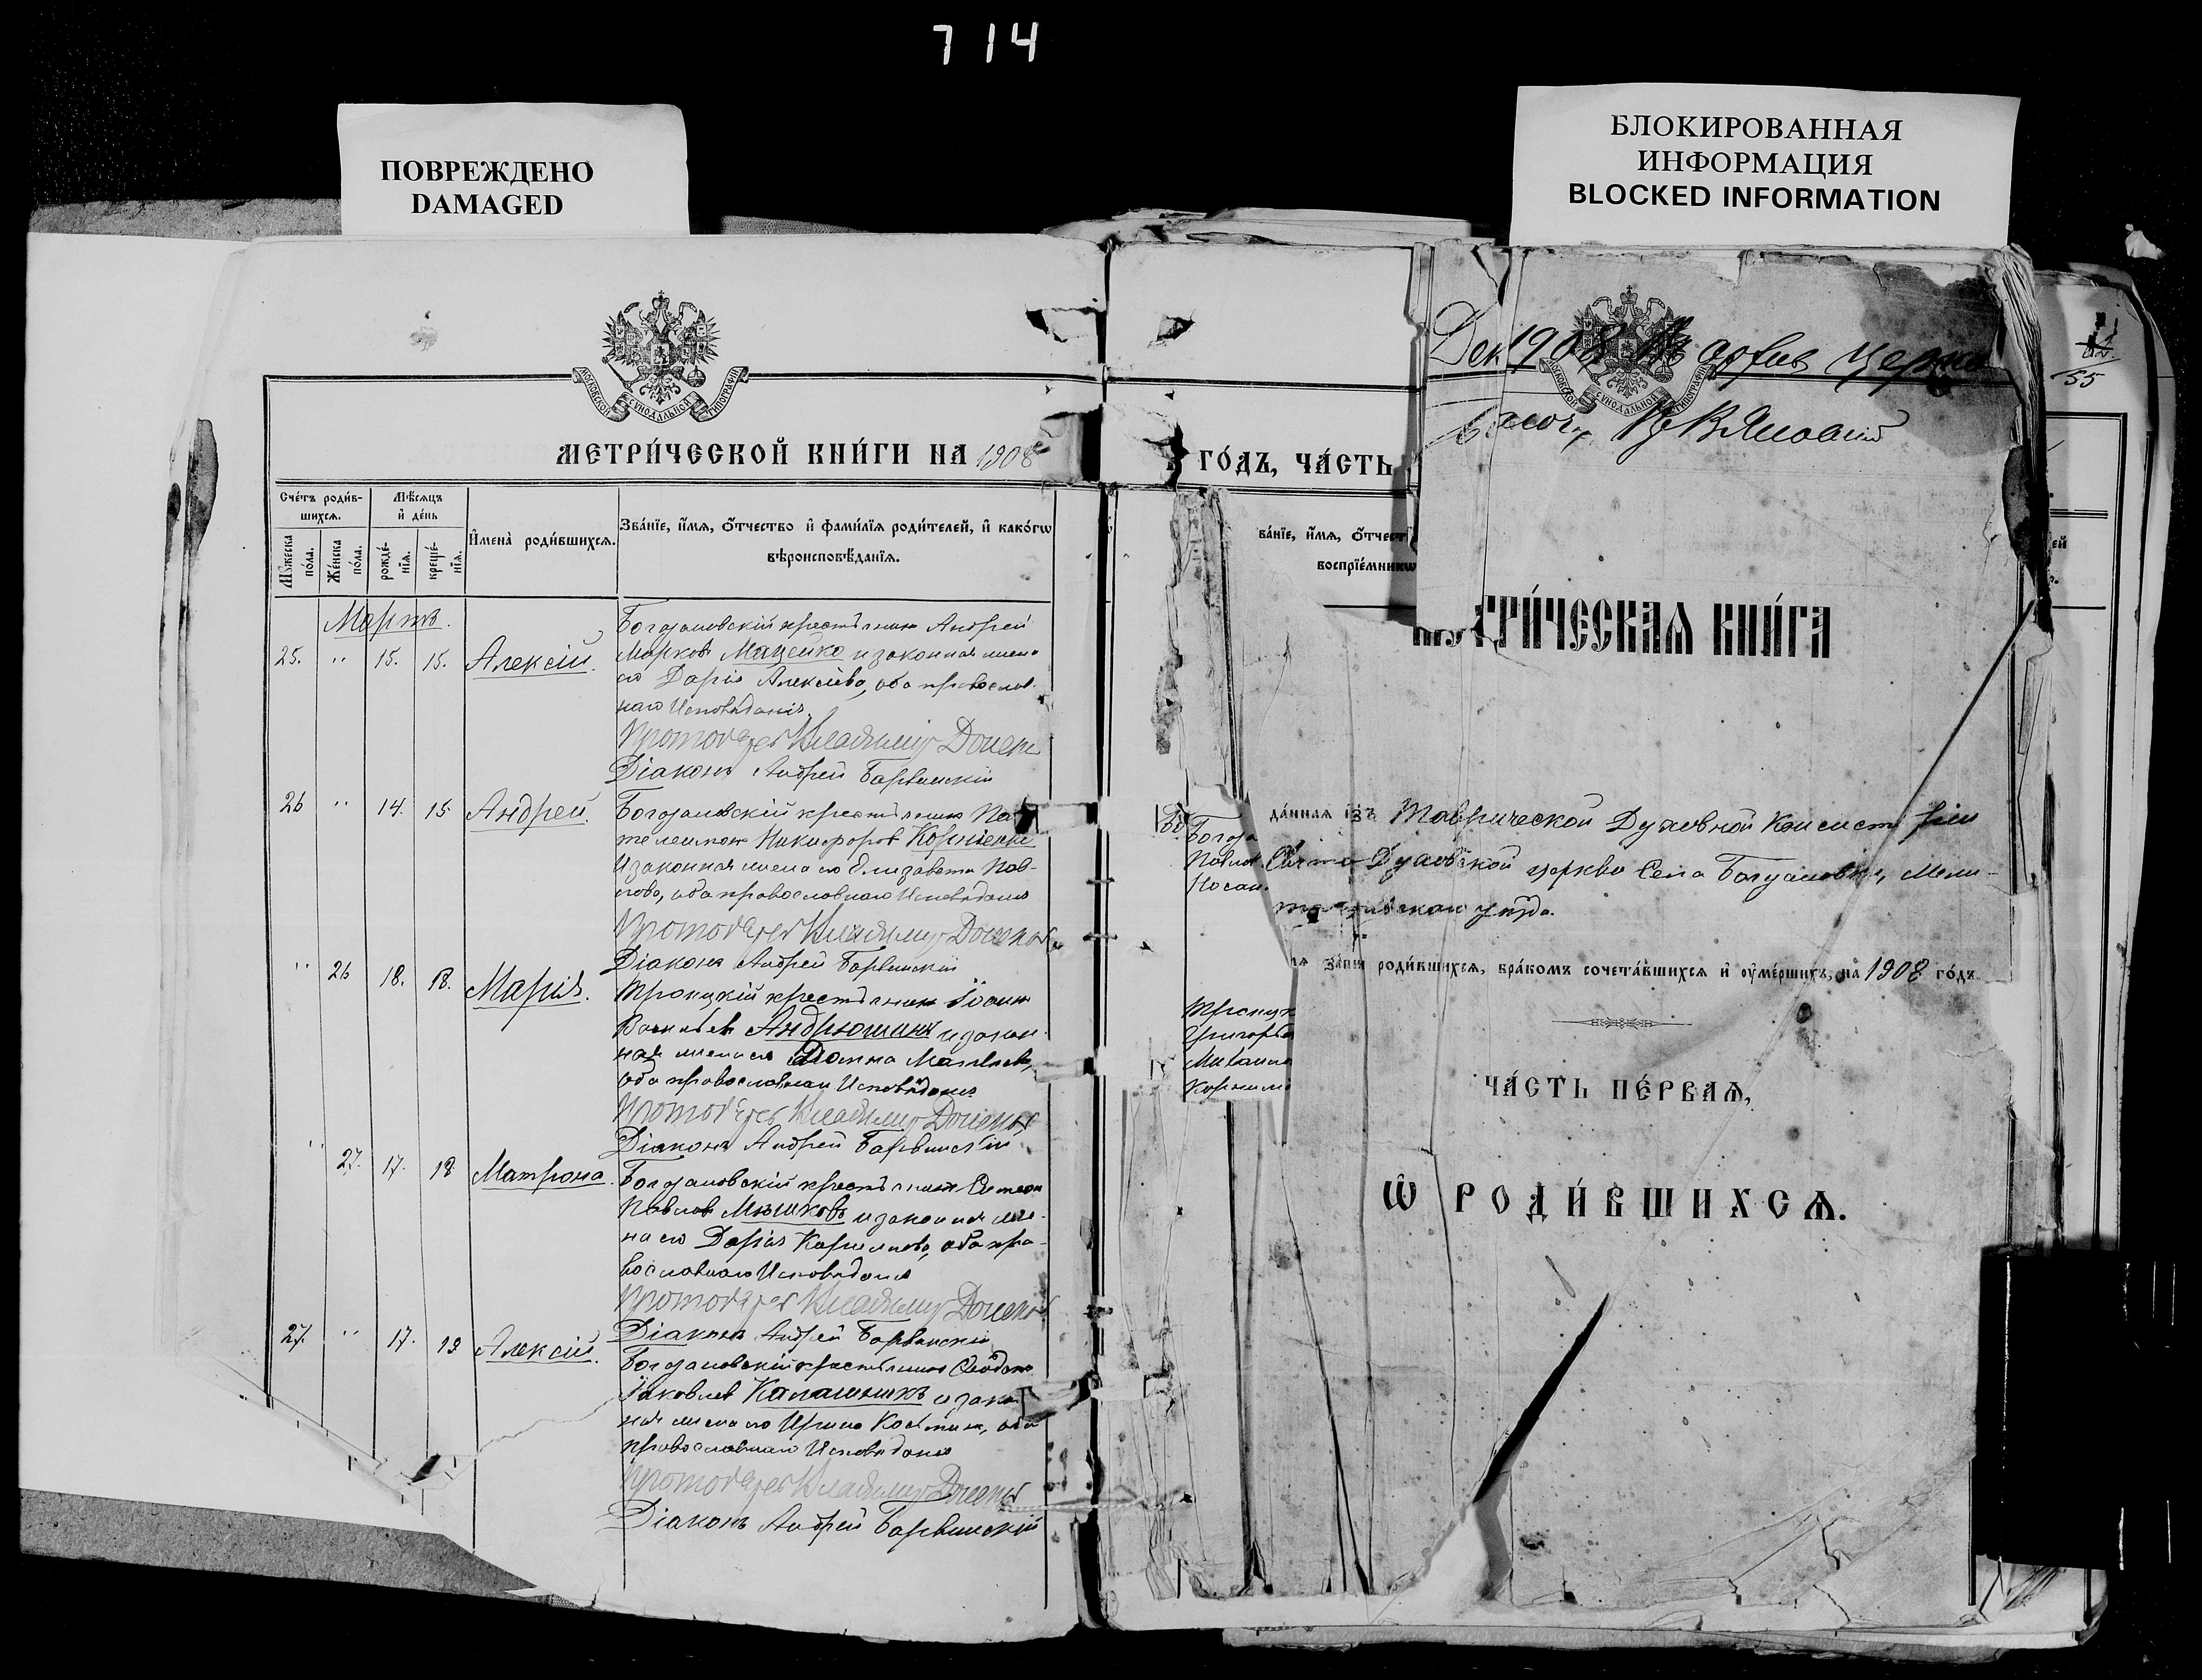 714
ПОВРЕЖДЕНО
DAMAGED
БЛОКИРОВАННАЯ
ИНФОРМАЦИЯ
BLOCKED INFORMATION
МОСКОВСКОЙ СѴНОДАЛЬНОЙ ТИПОГРАФІИ
МЕТРИ́ЧЕСКОЙ КНИ́ГИ НА 1908
Сче́тъ роди́в-
шихсѧ.
Мꙋ́жеска
по́ла.
Же́нска
по́ла.
Мѣ́сѧцъ
и҆ де́нь
рожде́-
нїѧ.
креще́-
нїѧ.
И҆мена̀ роди́вшихсѧ.
Зва́нїе, и҆́мѧ, ѻ҆́тчество и҆ фами́лїѧ роди́телей, и҆ како́гѡ
вѣроисповѣ́данїѧ.
Мартъ.
25. " 15. 15. Алексій.
Богдановскій крестьянинъ Андрей
Марковъ Мацейко и законная жена
его Дарія Алексѣева, оба православ-
наго Исповѣданія.
Протоіерей Владимир Донецъ
Діаконъ Андрей Барвинскій
26 " 14. 15 Андрей.
Богдановскій крестьянинъ Пан
телеимонъ Никифоровъ Корніенко
и законная жена его Елизавета Пав-
лова, оба православнаго Исповѣданія
Протоіерей Владимир Донецъ
Діаконъ Андрей Барвинскій
" 26 18. 18. Марія.
Троицкій крестьянинъ Іоаннъ
Васильевъ Андрюшинъ и закон-
ная жена его Домна
оба православнаго Исповѣданія
Протоіерей Владимир Донецъ
Діаконъ Андрей Барвинскій
" 27. 17. 18 Матрона.
Богдановскій крестьянинъ Симеонъ
Павловъ Мышковъ и законная же-
на его Дарія Корнилиева, оба пра-
вославнаго Исповѣданія
Протоіерей Владимир Донецъ
Діаконъ Андрей Барвинскій
27. " 17. 19 Алексій.
Богдановскій крестьянинъ
Іаковлевъ Калашникъ и закон
ная жена его Ирина оба
православнаго Исповѣданія
Протоіерей Владимир Донецъ
Діаконъ Андрей Барвинскій
ГО́ДЪ, ЧА́СТЬ
ва́нїе, и҆́мѧ, ѻ҆́тчест
воспрїе́мникѡ
Богда
Павлов
Григорьев
1908 Въ архив Церкв
МОСКОВСКОЙ СѴНОДАЛЬНОЙ ТИПОГРАФІИ
МЕТРИ́ЧЕСКАѦ КНИ́ГА
да́ннаѧ и҆зъ Таврической Духовной Консисторіи
Свято-Духовской церкви Села Богдановки, Мели-
топольскаго уѣзда.
роди́вшихсѧ, бра́комъ сочета́вшихсѧ и҆ ᲂу҆ме́ршихъ, на̀ 1908 го́дъ.
ЧА́СТЬ ПЕ́РВАѦ,
Ѽ РОДИ́ВШИХСѦ.
55